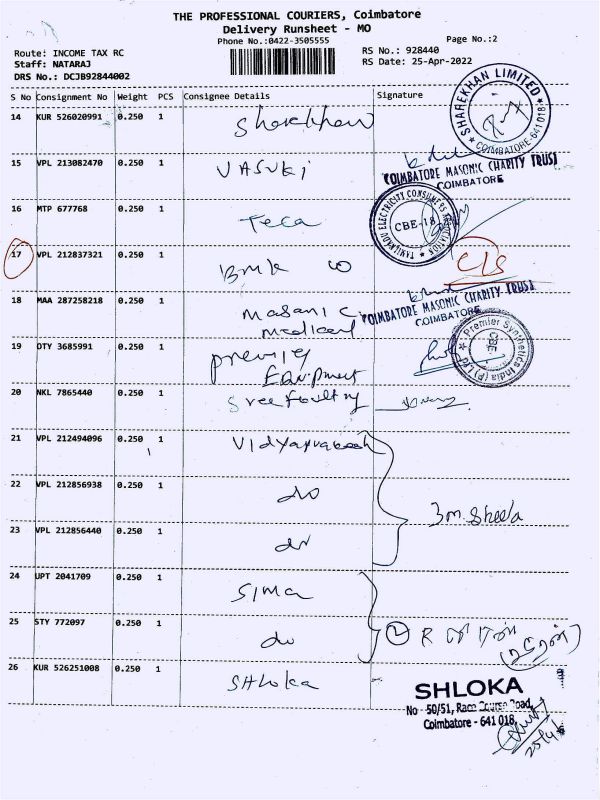 THE PROFESSIONAL COURIERS, Coimbatore
Delivery Runsheet - MO
Phone No.:0422-3505555
Page No.:2
Route: INCOME TAX RC
Staff: NATARAJ
DRS No.: DCJB92844002
RS No.: 928440
RS Date: 25-Apr-2022
S No Consignment No Weight PCS Consignee Details Signature
14 KUR 526020991 0.250 1 Sharekhan
SHAREKHAN LIMITED
COIMBATORE-641 018.
15 VPL 213082470 0.250 1 VASUKI
COIMBATORE MASONIC CHARITY TRUST
COIMBATORE
16 MTP 677768 0.250 1 Teca
TAMILNADU ELECTRICITY CONSUMERS ASSOCIATION
CBE-18
17 VPL 212837321 0.250 1 BMK CO
C/S
18 MAA 287258218 0.250 1 Masanic
medical
COIMBATORE MASONIC CHARITY TRUST
COIMBATORE
19 DTY 3685991 0.250 1 premier
Equipment
Premier Synthetics India (P) Ltd
CBE
20 NKL 7865440 0.250 1 Sree Poultry
21 VPL 212494096 0.250 1 Vidyaprakash
22 VPL 212856938 0.250 1 do
3m. Sheela
23 VPL 212856440 0.250 1 do
24 UPT 2041709 0.250 1 SIMA
25 STY 772097 0.250 1 do
2 R
26 KUR 526251008 0.250 1 SHloka
SHLOKA
No 50/51, Race Course Road,
Coimbatore - 641 018.